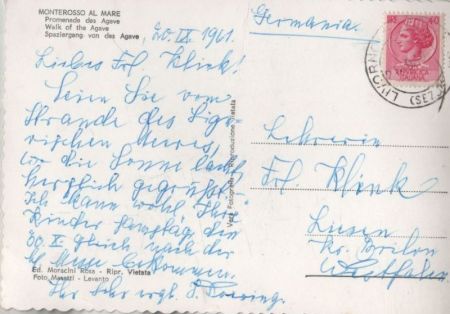 MONTEROSSO AL MARE
Promenade des Agave
Walk of the Agave
Spaziergang von des Agave
20. IX. 1961.
Liebes Frl. Klink!
Seien Sie vom
Strande des Ligu-
rischen Meeres,
wo die Sonne lacht,
herzlich gegrüßt.
Ich kann wohl Ihre
Kinder samstag, den
30. IX. gleich nach der
hl. Messe bekommen.
Ihr sehr ergb.
Ed. Moracini Rosa - Ripr. Vietata
Foto Masetti - Levanto
Vera Fotografia - Riproduzione Vietata
Germania.
LIVORNO
REPUBBLICA
ITALIANA
Lehrerin
Frl. Klink
Kr. Brilon
Westfalen